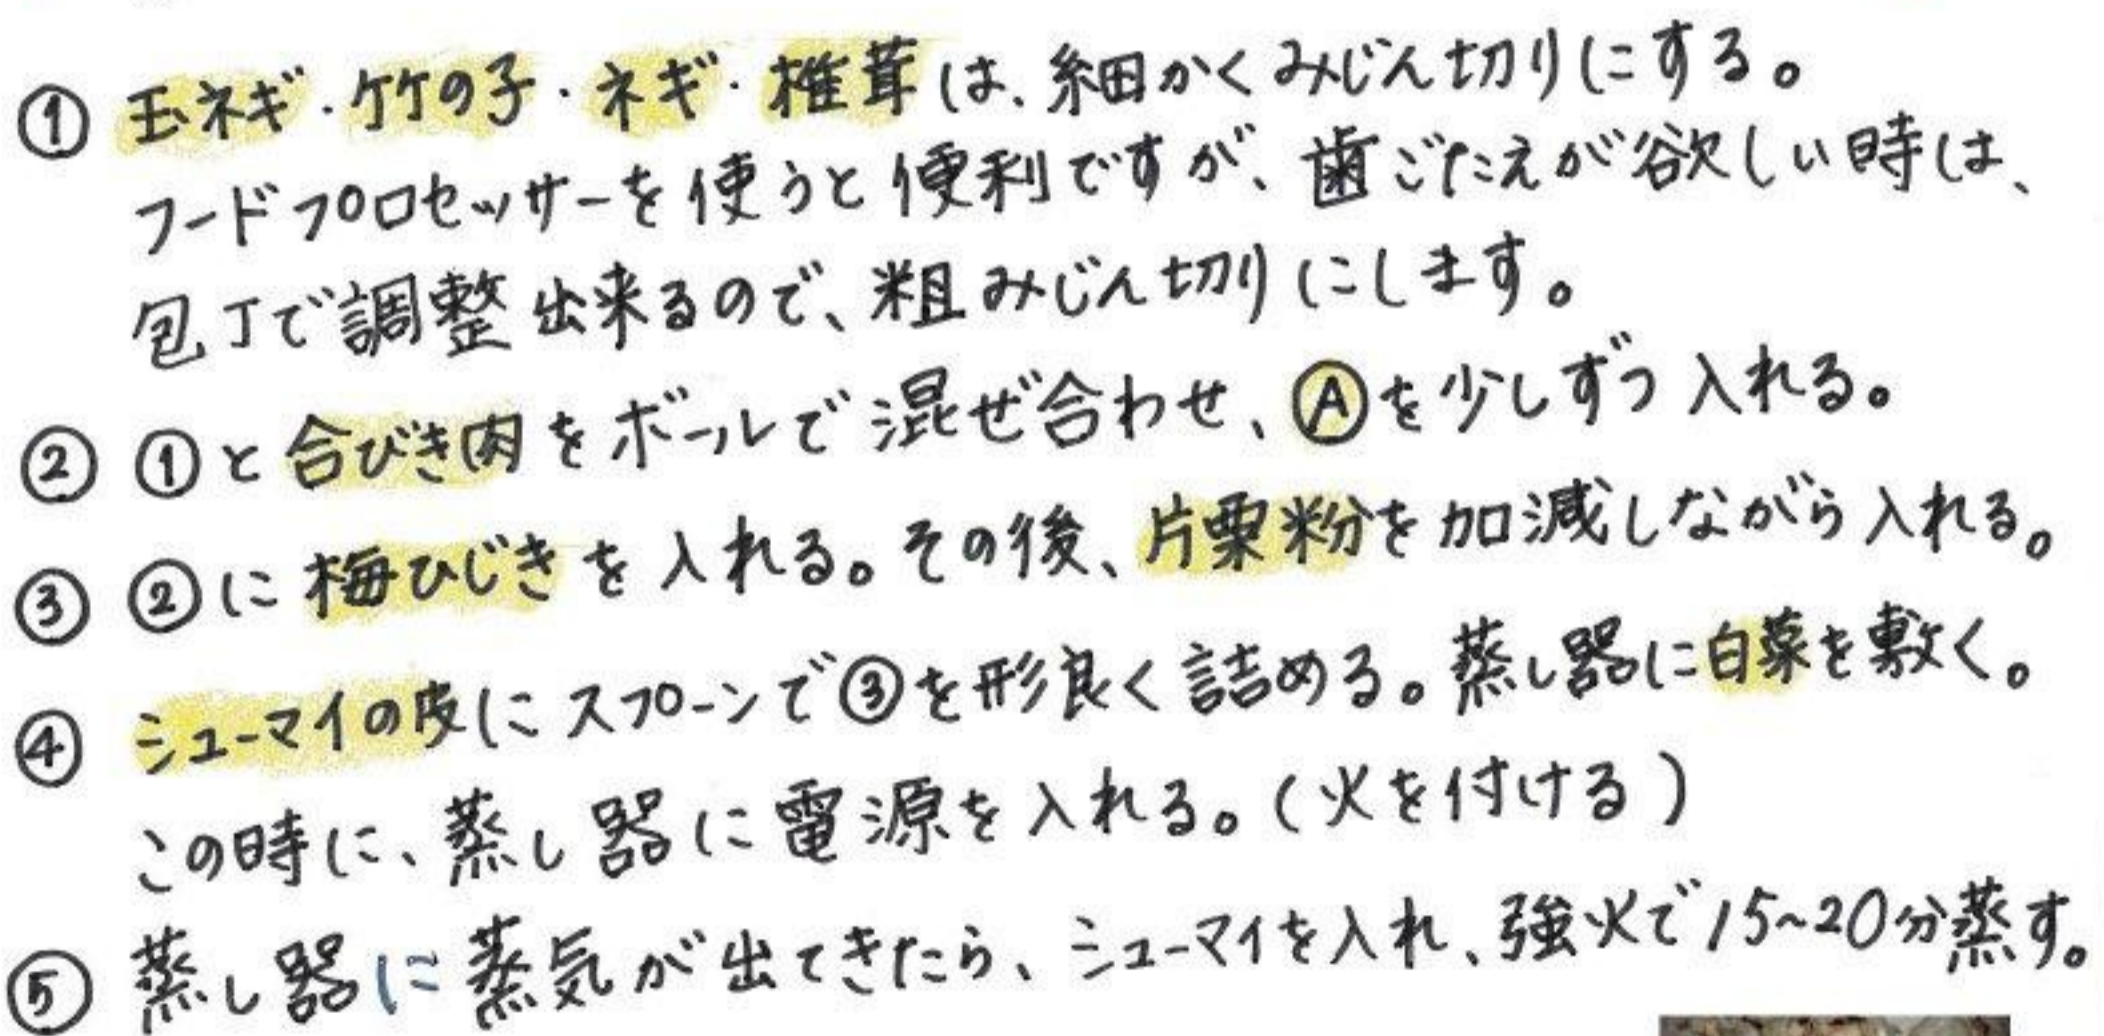 ① 玉ネギ・竹の子・ネギ・椎茸は、細かくみじん切りにする。
フードプロセッサーを使うと便利ですが、歯ごたえが欲しい時は、
包丁で調整出来るので、粗みじん切りにします。
② ①と合びき肉をボールで混ぜ合わせ、Ⓐを少しずつ入れる。
③ ②に梅ひじきを入れる。その後、片栗粉を加減しながら入れる。
④ シューマイの皮にスプーンで③を形良く詰める。蒸し器に白菜を敷く。
この時に、蒸し器に電源を入れる。(火を付ける)
⑤ 蒸し器に蒸気が出てきたら、シューマイを入れ、強火で15~20分蒸す。